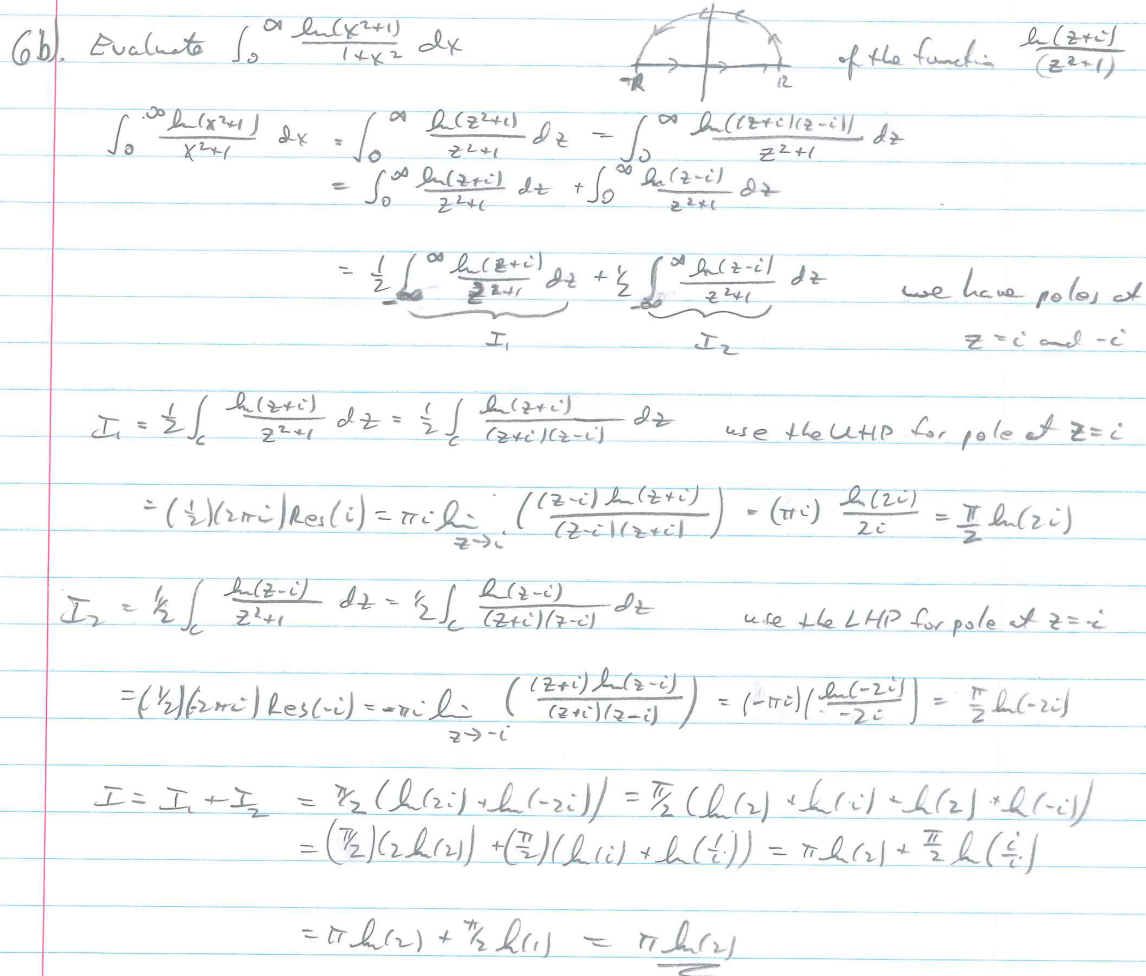 6b). Evaluate ∫₀^∞ ln(x²+1)/(1+x²) dx -R R of the function ln(z+i)/(z²+1)
∫₀^∞ ln(x²+1)/(x²+1) dx = ∫₀^∞ ln(z²+1)/(z²+1) dz = ∫₀^∞ ln((z+i)(z-i))/(z²+1) dz
= ∫₀^∞ ln(z+i)/(z²+1) dz + ∫₀^∞ ln(z-i)/(z²+1) dz
= 1/2 ∫_{-∞}^∞ ln(z+i)/(z²+1) dz + 1/2 ∫_{-∞}^∞ ln(z-i)/(z²+1) dz we have poles at
I₁ I₂ z = i and -i
I₁ = 1/2 ∫_c ln(z+i)/(z²+1) dz = 1/2 ∫_c ln(z+i)/((z+i)(z-i)) dz use the UHP for pole at z=i
= (1/2)(2πi) Res(i) = πi lim_{z→i} ((z-i) ln(z+i)/((z-i)(z+i))) = (πi) ln(2i)/2i = π/2 ln(2i)
I₂ = 1/2 ∫_c ln(z-i)/(z²+1) dz = 1/2 ∫_c ln(z-i)/((z+i)(z-i)) dz use the LHP for pole at z=-i
= (1/2)(-2πi) Res(-i) = -πi lim_{z→-i} ((z+i) ln(z-i)/((z+i)(z-i))) = (-πi)(ln(-2i)/-2i) = π/2 ln(-2i)
I = I₁ + I₂ = π/2 (ln(2i) + ln(-2i)) = π/2 (ln(2) + ln(i) + ln(2) + ln(-i))
= (π/2)(2ln(2)) + (π/2)(ln(i) + ln(1/i)) = π ln(2) + π/2 ln(i/i)
= π ln(2) + π/2 ln(1) = π ln(2)